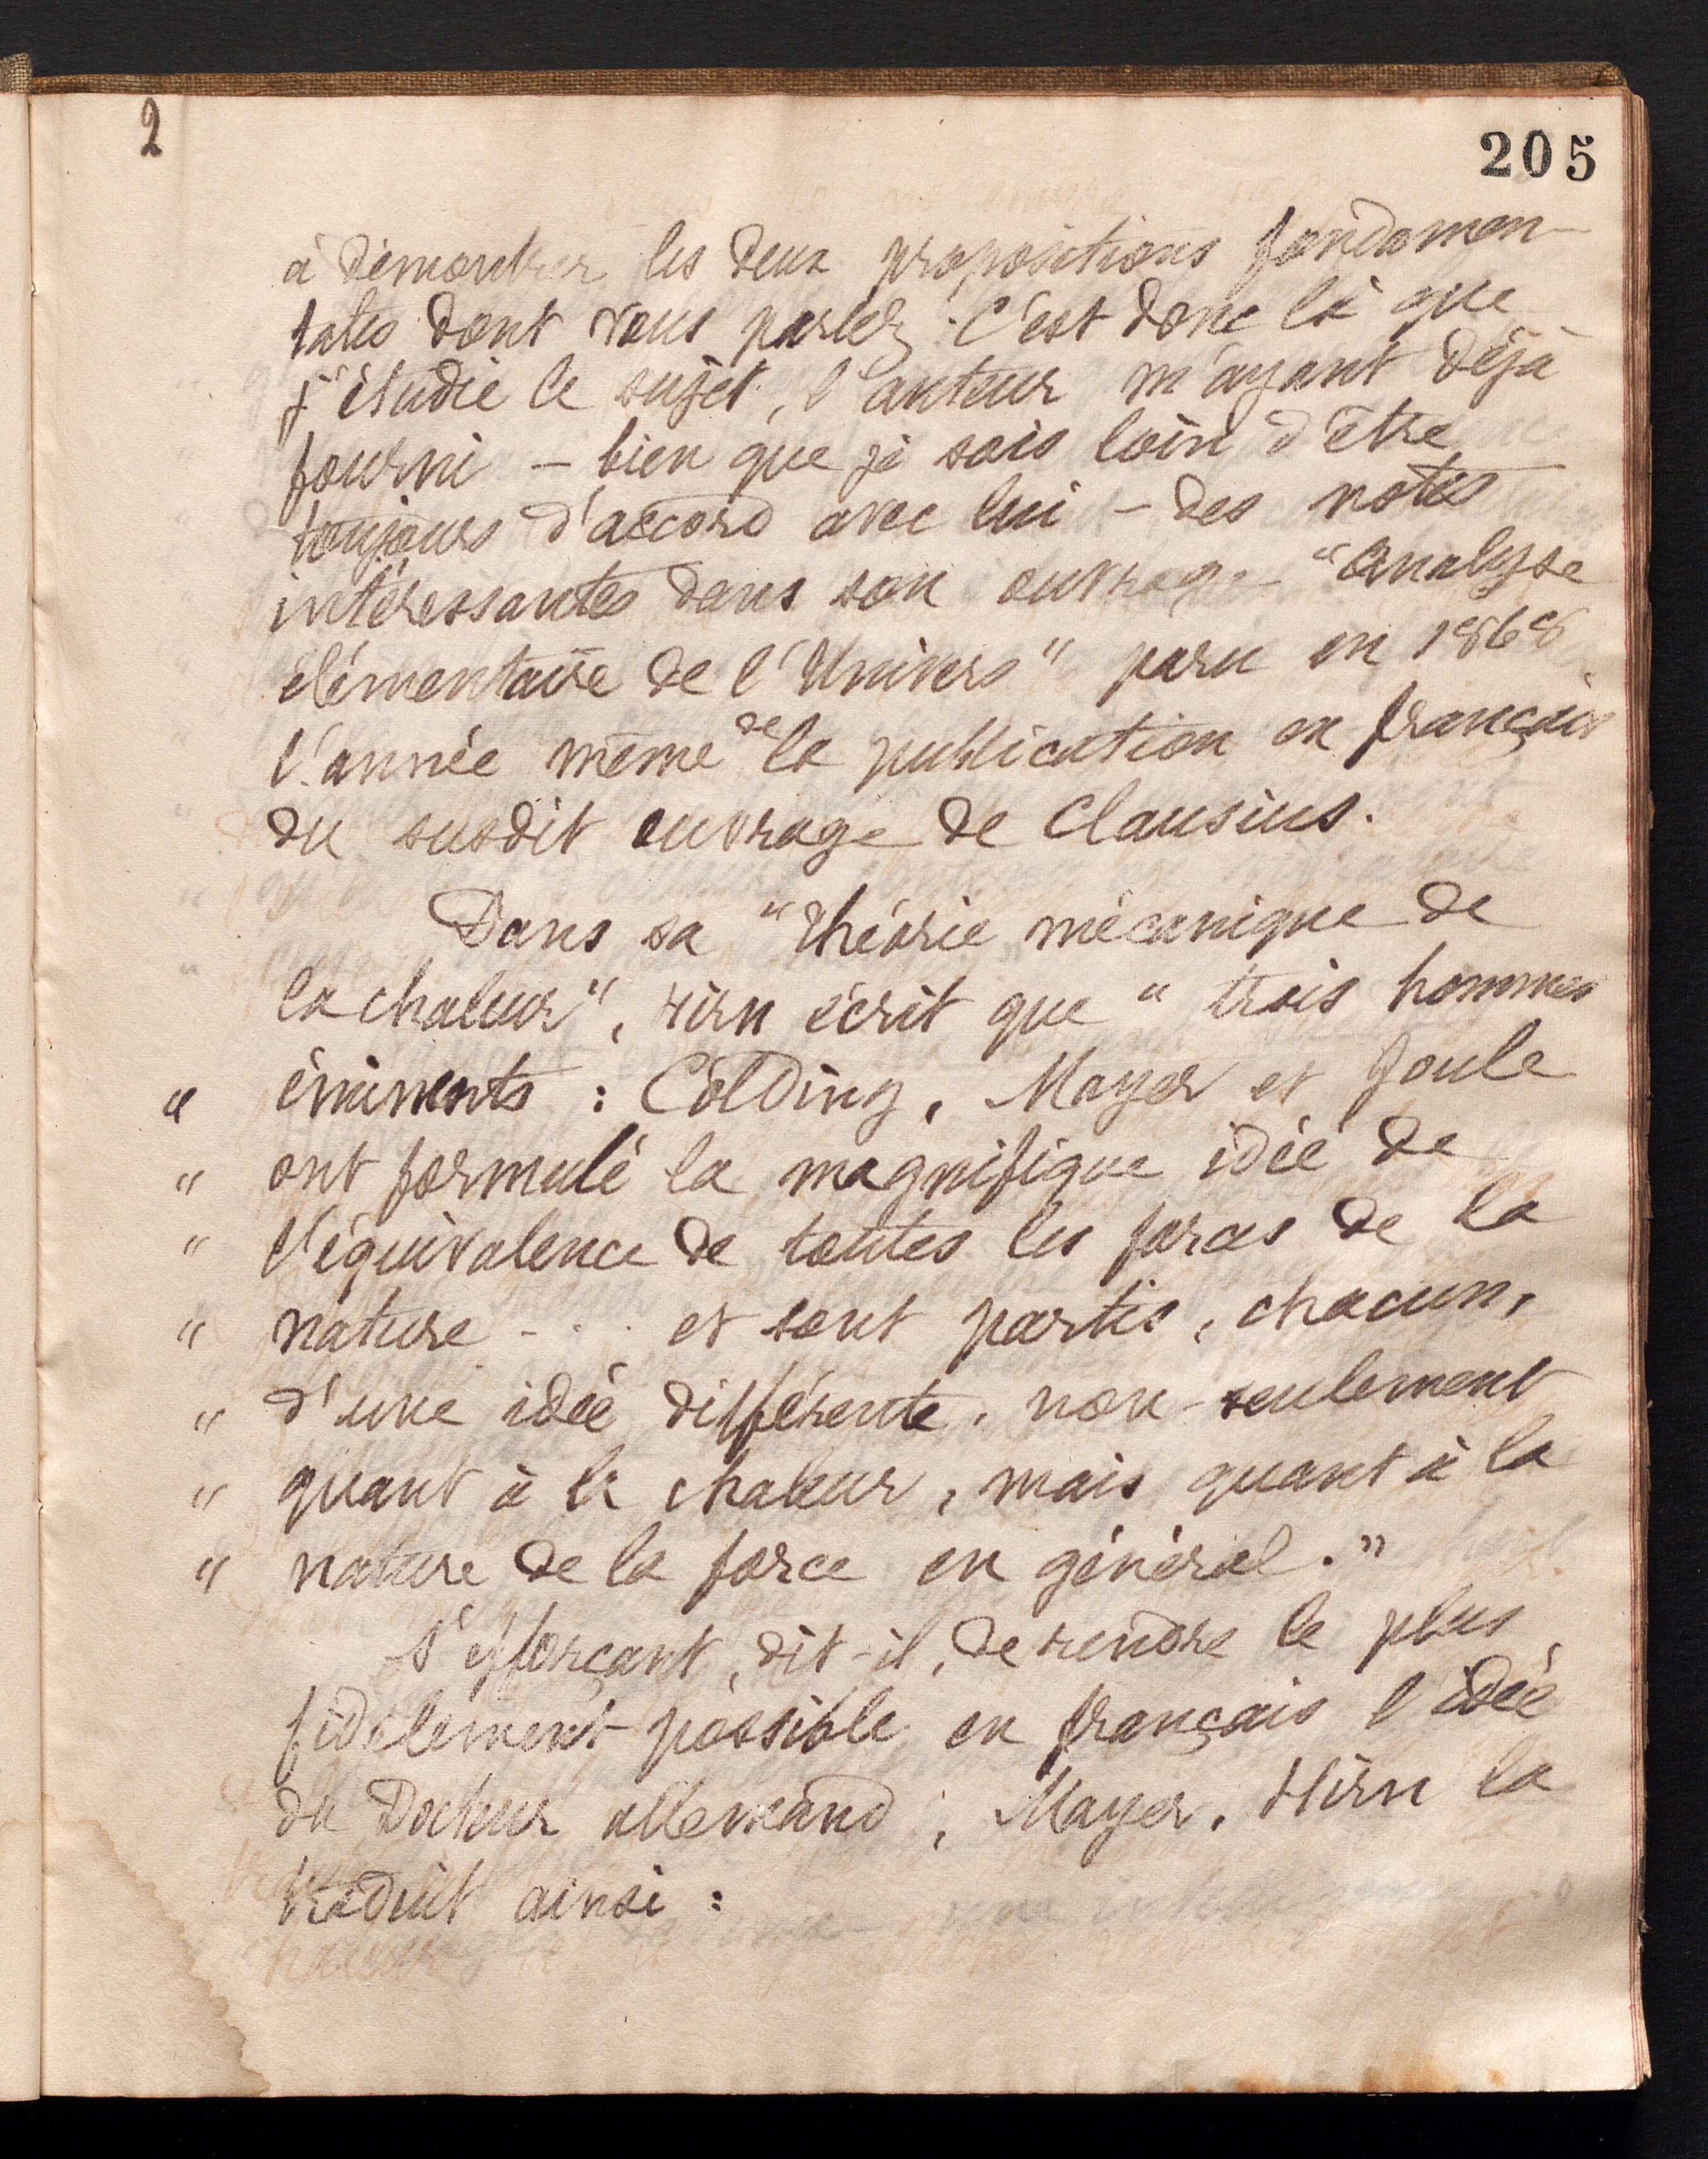 2
205
à démontrer les deux propositions fondamen-
tales dont vous parlez. C'est donc là que
j'étudie le sujet, l'auteur m'ayant déjà
fourni - bien que je sois loin d'être
toujours d'accord avec lui - des notes
intéressantes dans son ouvrage "Analyse
élémentaire de l'Univers" paru en 1868
l'année même de la publication en français
du susdit ouvrage de Clausius.
Dans sa "Théorie mécanique de
la chaleur", Hirn écrit que " trois hommes
" éminents : Colding, Mayer et Joule
" ont formulé la magnifique idée de
" l'équivalence de toutes les forces de la
" nature - . . et sont partis, chacun,
" d'une idée différente, non-seulement
" quant à la chaleur, mais quant à la
" nature de la force en général."
S'efforçant, dit-il, de rendre le plus
fidèlement possible en français l'idée
du Docteur allemand, Mayer, Hirn la
traduit ainsi :